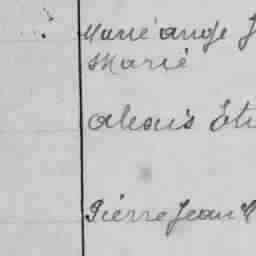 Marie ange J
Marie
alexis Eti
Pierre Jean M